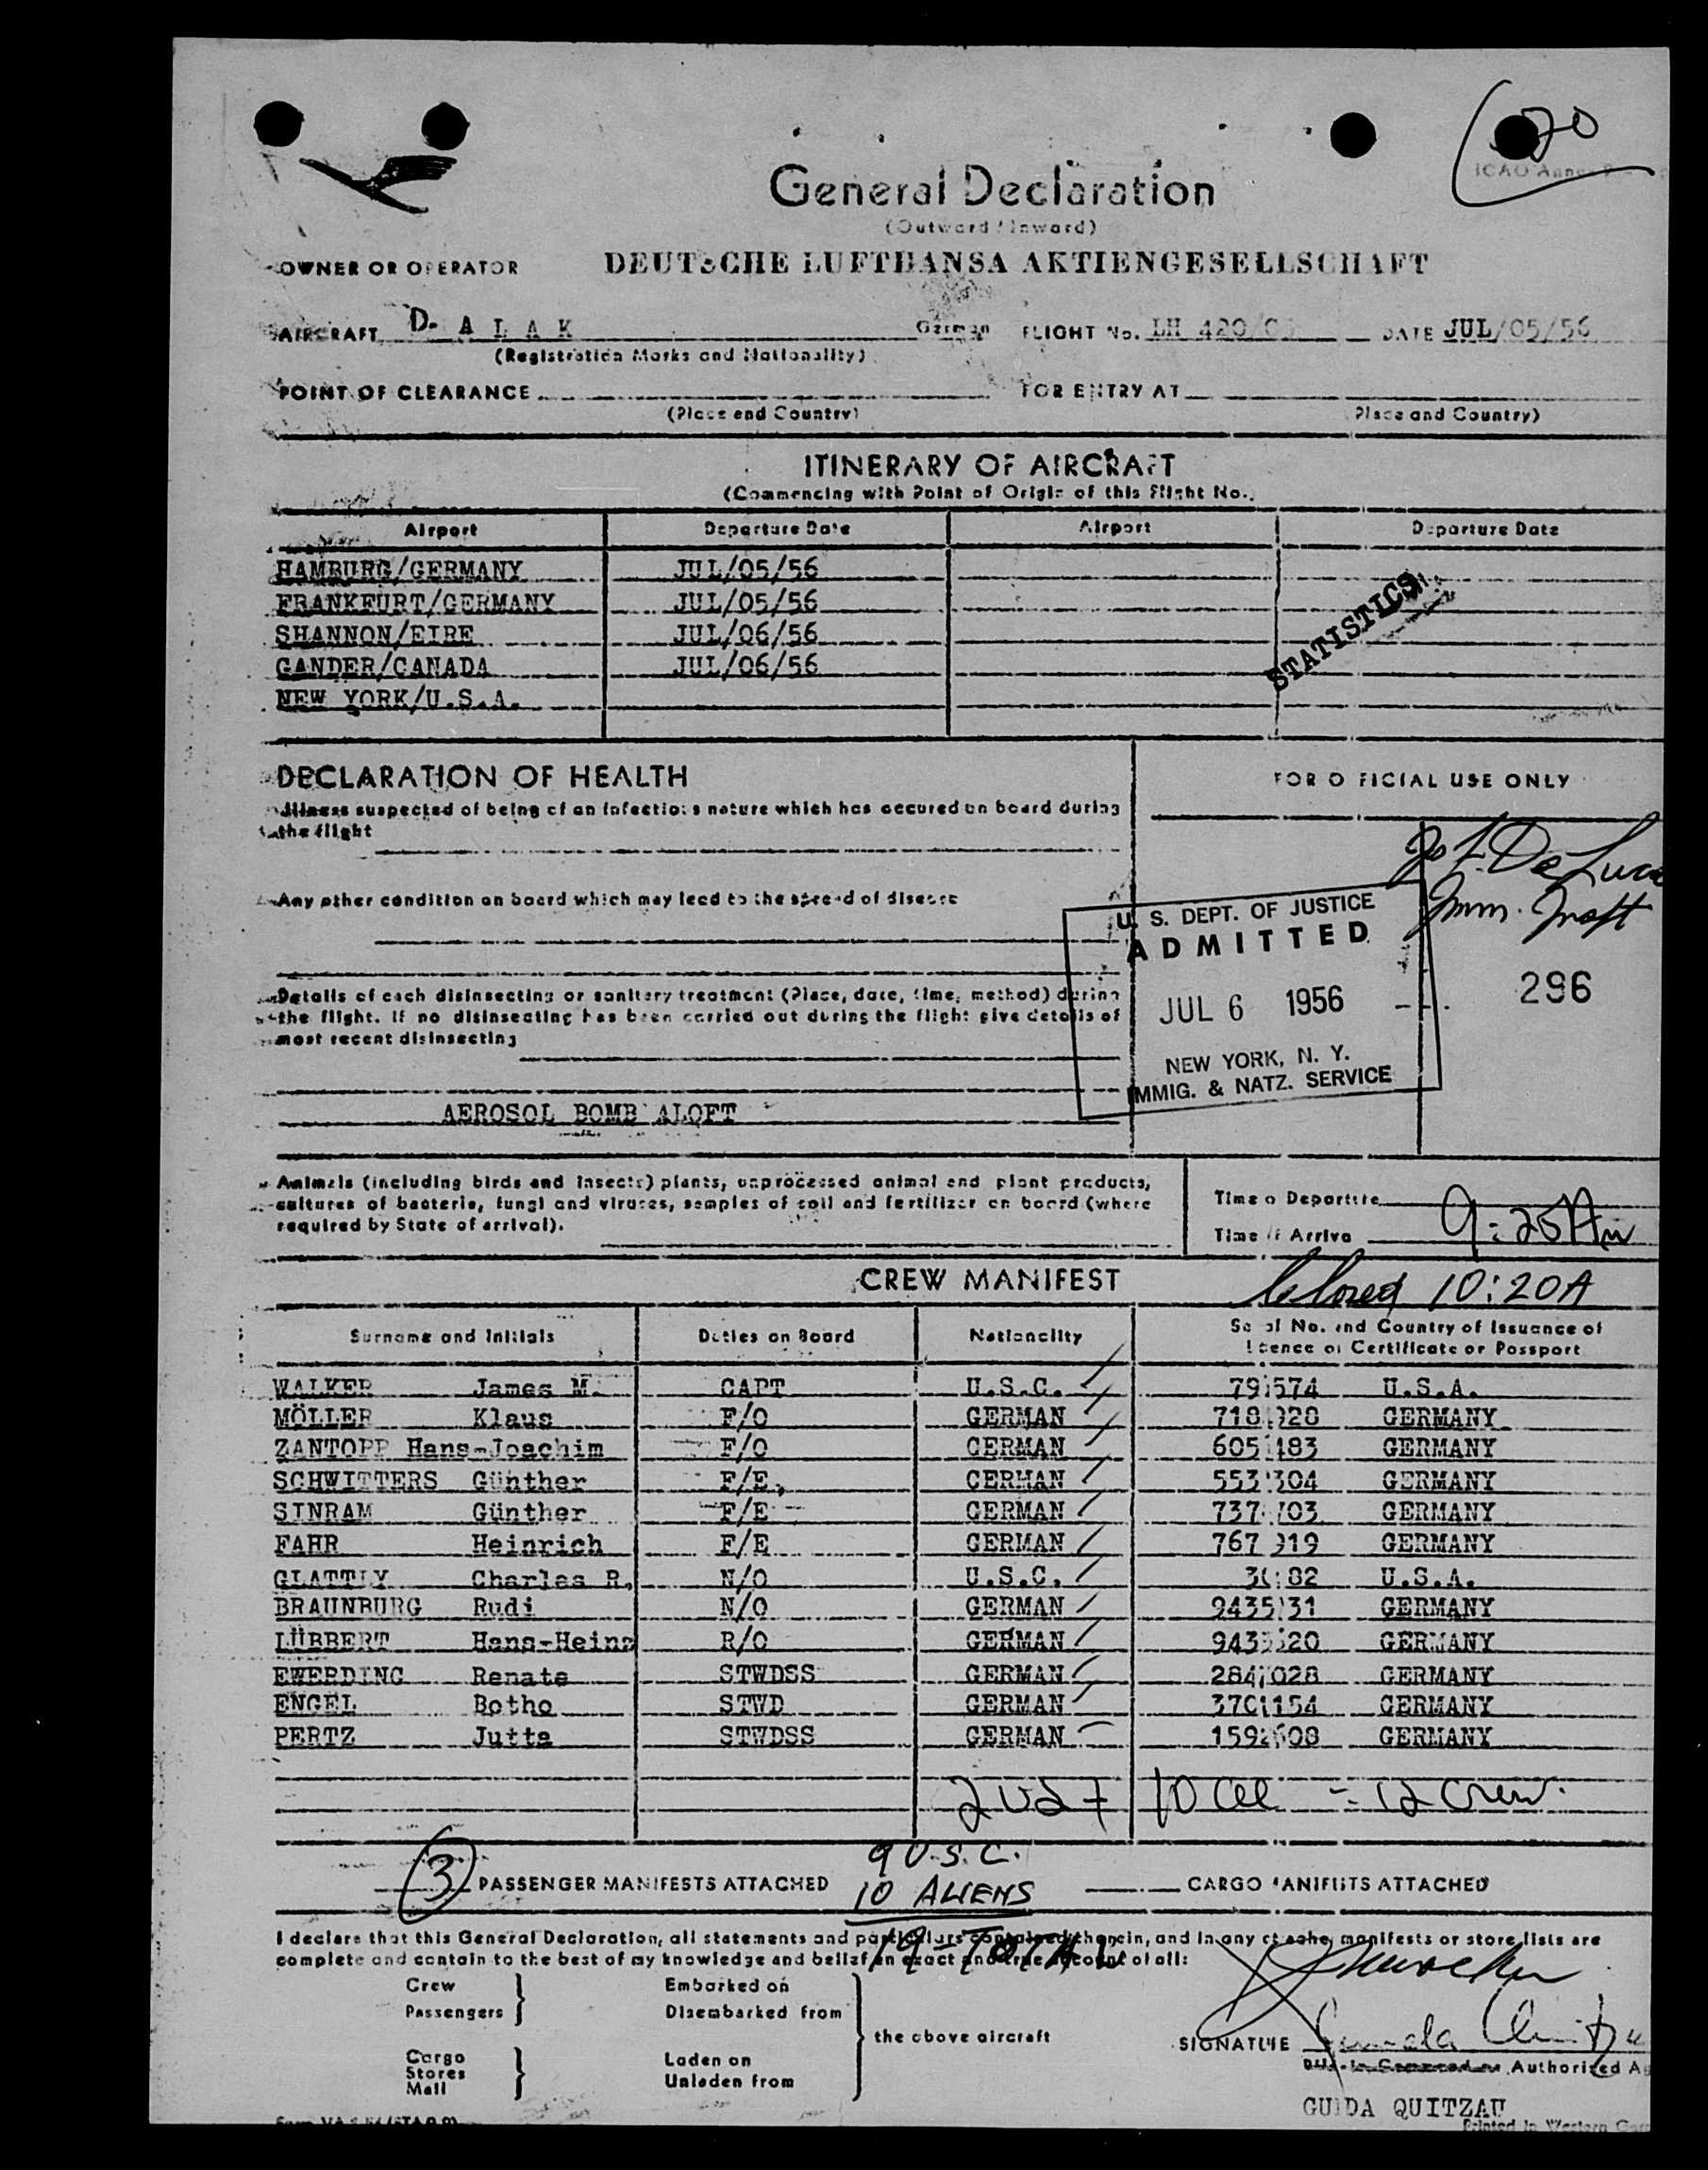 20
ICAO Annex 9
General Declaration
(Outward / Inward)
OWNER OR OPERATOR DEUTSCHE LUFTHANSA AKTIENGESELLSCHAFT
AIRCRAFT D- A L A K German FLIGHT No. LH 420/05 DATE JUL/05/56
(Registration Marks and Nationality)
POINT OF CLEARANCE FOR ENTRY AT
(Place and Country) Place and Country)
ITINERARY OF AIRCRAFT
(Commencing with Point of Origin of this Flight No.
Airport Departure Date Airport Departure Date
HAMBURG/GERMANY JUL/05/56
FRANKFURT/GERMANY JUL/05/56
SHANNON/EIRE JUL/06/56
GANDER/CANADA JUL/06/56
NEW YORK/U.S.A.
STATISTICS
DECLARATION OF HEALTH FOR OFFICIAL USE ONLY
Illness suspected of being of an infectious nature which has occured on board during
the flight
De Luca
Imm. Insp
Any other condition on board which may lead to the spread of disease
U. S. DEPT. OF JUSTICE
ADMITTED
JUL 6 1956
NEW YORK, N. Y.
IMMIG. & NATZ. SERVICE
296
Details of each disinsecting or sanitary treatment (Place, date, time, method) during
the flight. If no disinsecting has been carried out during the flight give details of
most recent disinsecting
AEROSOL BOMB ALOFT
Animals (including birds and insects) plants, unprocessed animal and plant products,
cultures of bacteria, fungi and viruses, samples of soil and fertilizer on board (where
required by State of arrival).
Time of Departure
Time of Arrival 9:25 Am
CREW MANIFEST
Cleared 10:20A
Surname and Initials Duties on Board Nationality Serial No. and Country of Issuance of
Licence or Certificate or Passport
WALKER James M. CAPT U.S.C. 79 574 U.S.A.
MÖLLER Klaus F/O GERMAN 718 928 GERMANY
ZANTOPP Hans-Joachim F/O GERMAN 605 483 GERMANY
SCHWITTERS Günther F/E GERMAN 553 304 GERMANY
SINRAM Günther F/E GERMAN 737 703 GERMANY
FAHR Heinrich F/E GERMAN 767 919 GERMANY
GLATTLY Charles R. N/O U.S.C. 82 U.S.A.
BRAUNBURG Rudi N/O GERMAN 9435 31 GERMANY
LÜBBERT Hans-Heinz R/O GERMAN 943 20 GERMANY
EWERDING Renate STWDSS GERMAN 284 028 GERMANY
ENGEL Botho STWD GERMAN 370 154 GERMANY
PERTZ Jutta STWDSS GERMAN 159 608 GERMANY
2 USC + 10 all = 12 Crew.
3 PASSENGER MANIFESTS ATTACHED CARGO MANIFESTS ATTACHED
9 U.S.C.
10 ALIENS
19-TOTAL
I declare that this General Declaration, all statements and particulars contained therein, and in any attached manifests or store lists are
complete and contain to the best of my knowledge and belief an exact and true account of all:
Crew Embarked on
Passengers Disembarked from
the above aircraft
Cargo Laden on
Stores Unladen from
Mail
SIGNATURE
Authorized A
GUIDA QUITZAU
Printed in Western